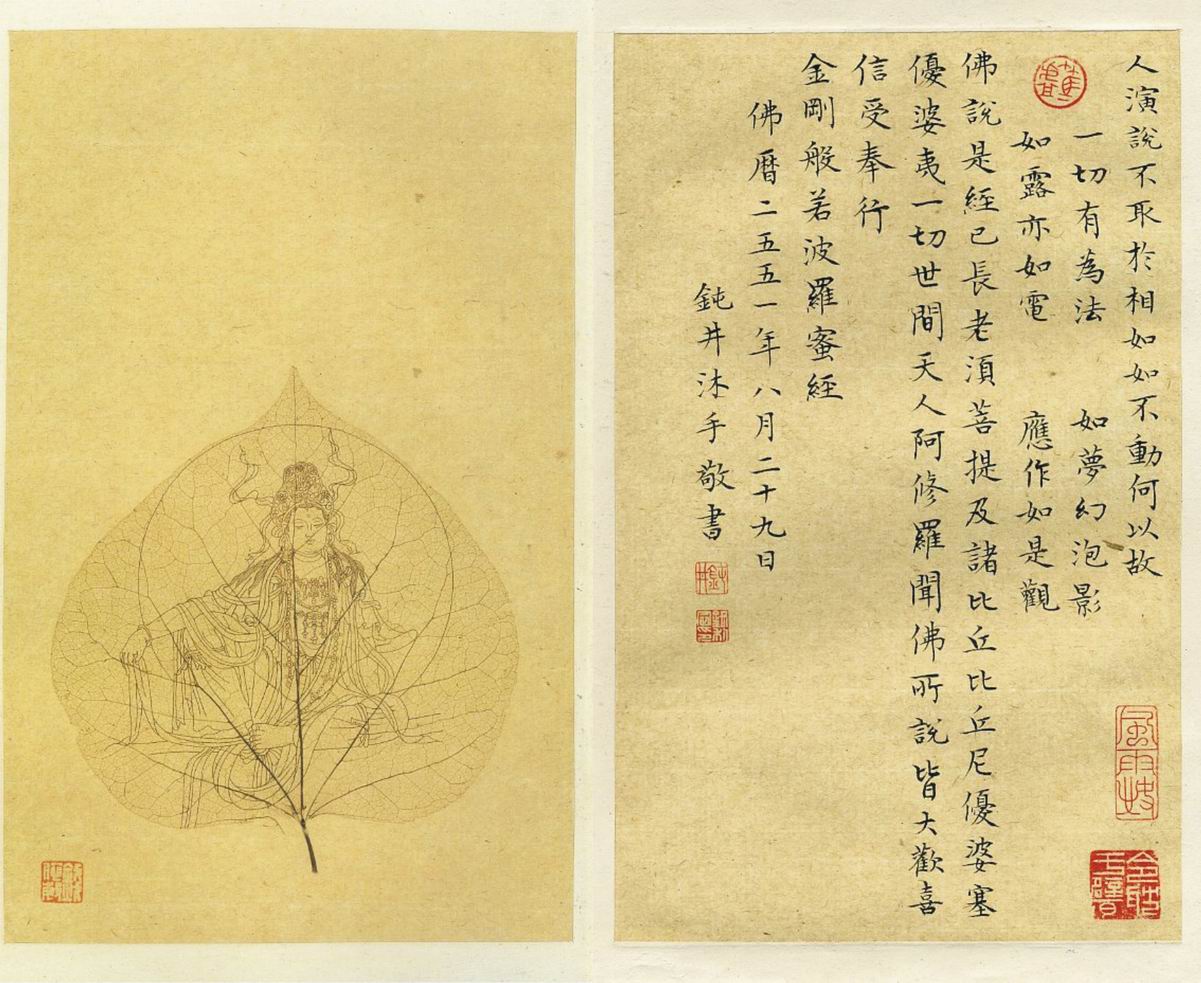 人演說不取於相如如不動何以故
一切有為法　如夢幻泡影
如露亦如電　應作如是觀
佛說是經已長老湏菩提及諸比丘比丘尼優婆塞
優婆夷一切世間天人阿修羅聞佛所說皆大歡喜
信受奉行
金剛般若波羅蜜經
佛暦二五五一年八月二十九日
鈍井沐手敬書